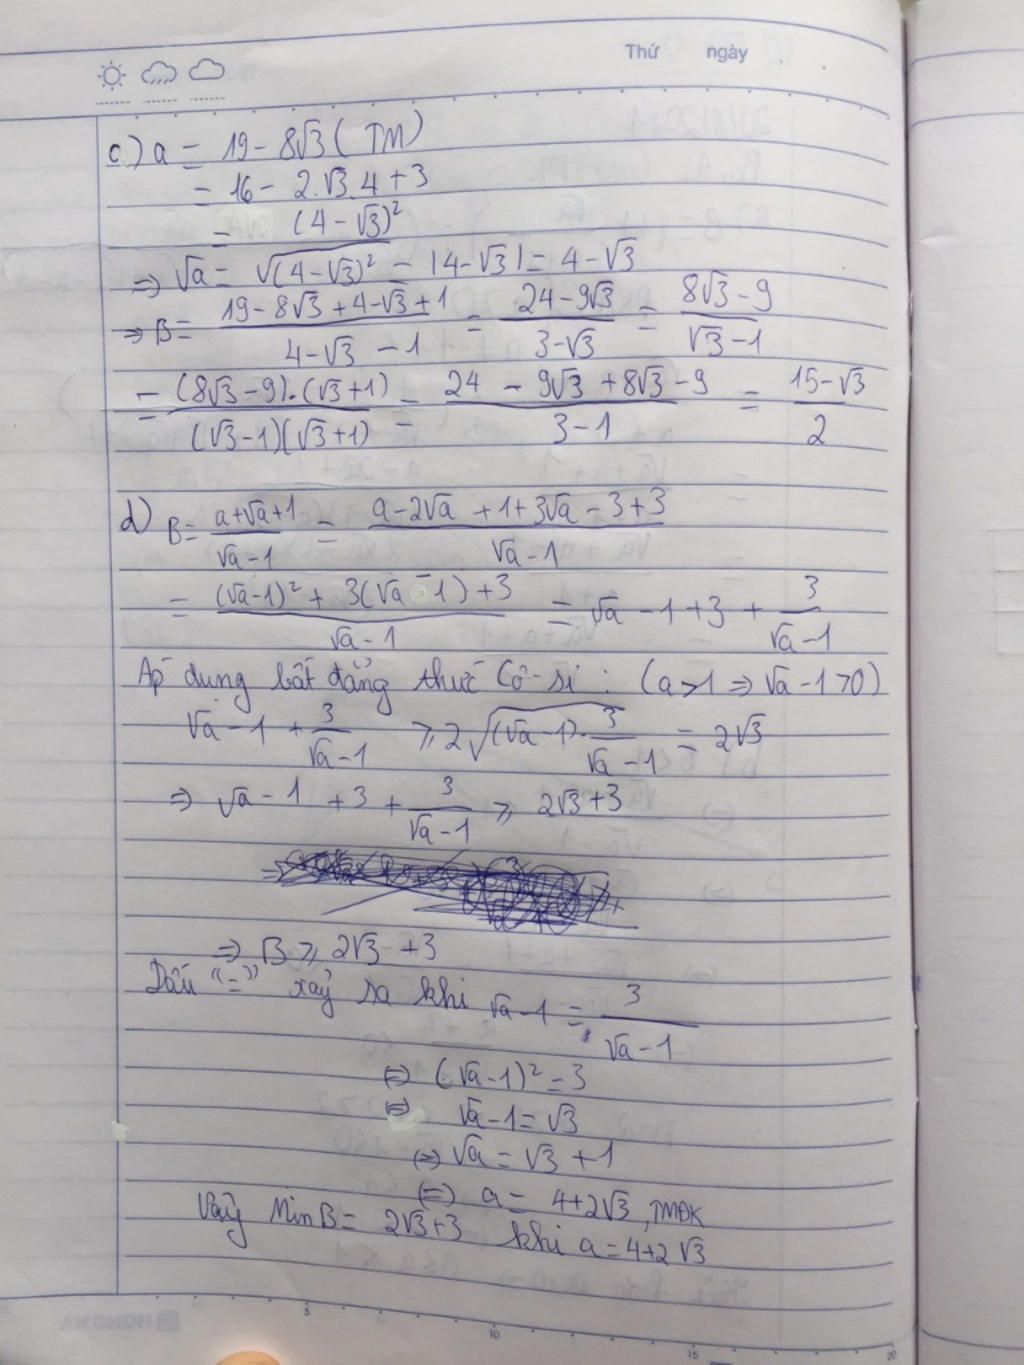 Thứ ngày
c) a = 19 - 8√3 (TM)
= 16 - 2.√3.4 + 3
= (4 - √3)²
⇒ √a = √(4-√3)² = |4-√3| = 4 - √3
⇒ B = (19 - 8√3 + 4 - √3 + 1)/(4 - √3 - 1) = (24 - 9√3)/(3 - √3) = (8√3 - 9)/(√3 - 1)
= ((8√3 - 9).(√3 + 1))/((√3 - 1)(√3 + 1)) = (24 - 9√3 + 8√3 - 9)/(3 - 1) = (15 - √3)/2
d) B = (a + √a + 1)/(√a - 1) = (a - 2√a + 1 + 3√a - 3 + 3)/(√a - 1)
= ((√a - 1)² + 3(√a - 1) + 3)/(√a - 1) = √a - 1 + 3 + 3/(√a - 1)
Áp dụng bất đẳng thức Cô-si : (a > 1 ⇒ √a - 1 > 0)
√a - 1 + 3/(√a - 1) ≥ 2√((√a - 1).3/(√a - 1)) = 2√3
⇒ √a - 1 + 3 + 3/(√a - 1) ≥ 2√3 + 3
⇒ B ≥ 2√3 + 3
Dấu "=" xảy ra khi √a - 1 = 3/(√a - 1)
⇔ (√a - 1)² = 3
⇔ √a - 1 = √3
⇔ √a = √3 + 1
⇔ a = 4 + 2√3, TMĐK
Vậy Min B = 2√3 + 3 khi a = 4 + 2√3
5 10 15 20